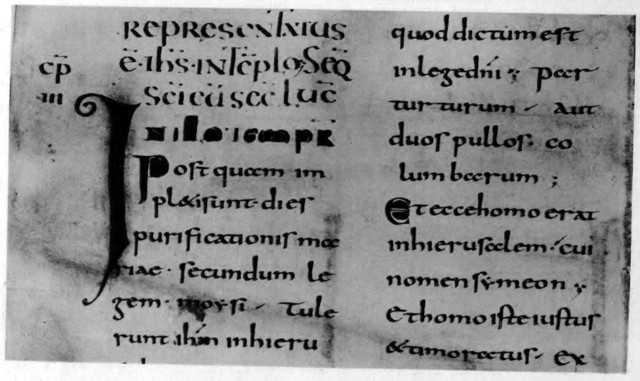 REPRESENTATUS
CP̄ Ē· IHS̄· IN TĒPLO; SEQ̄
·III SCI EŪ SEC̄ LUC̄
IN ILLO TEMPR
Post quam im
pl&i sunt· dies
purificationis ma
riae· secundum le
gem· moysi· Tule
runt ihm̄ inhieru
quod dictum est
inlege dn̄i; Par
turturum· Aut
duos pullos· co
lumbarum;
Et ecce homo erat
inhierusalem· cui
nomen symeon;
Et homo iste iustus
&timoratus· Ex